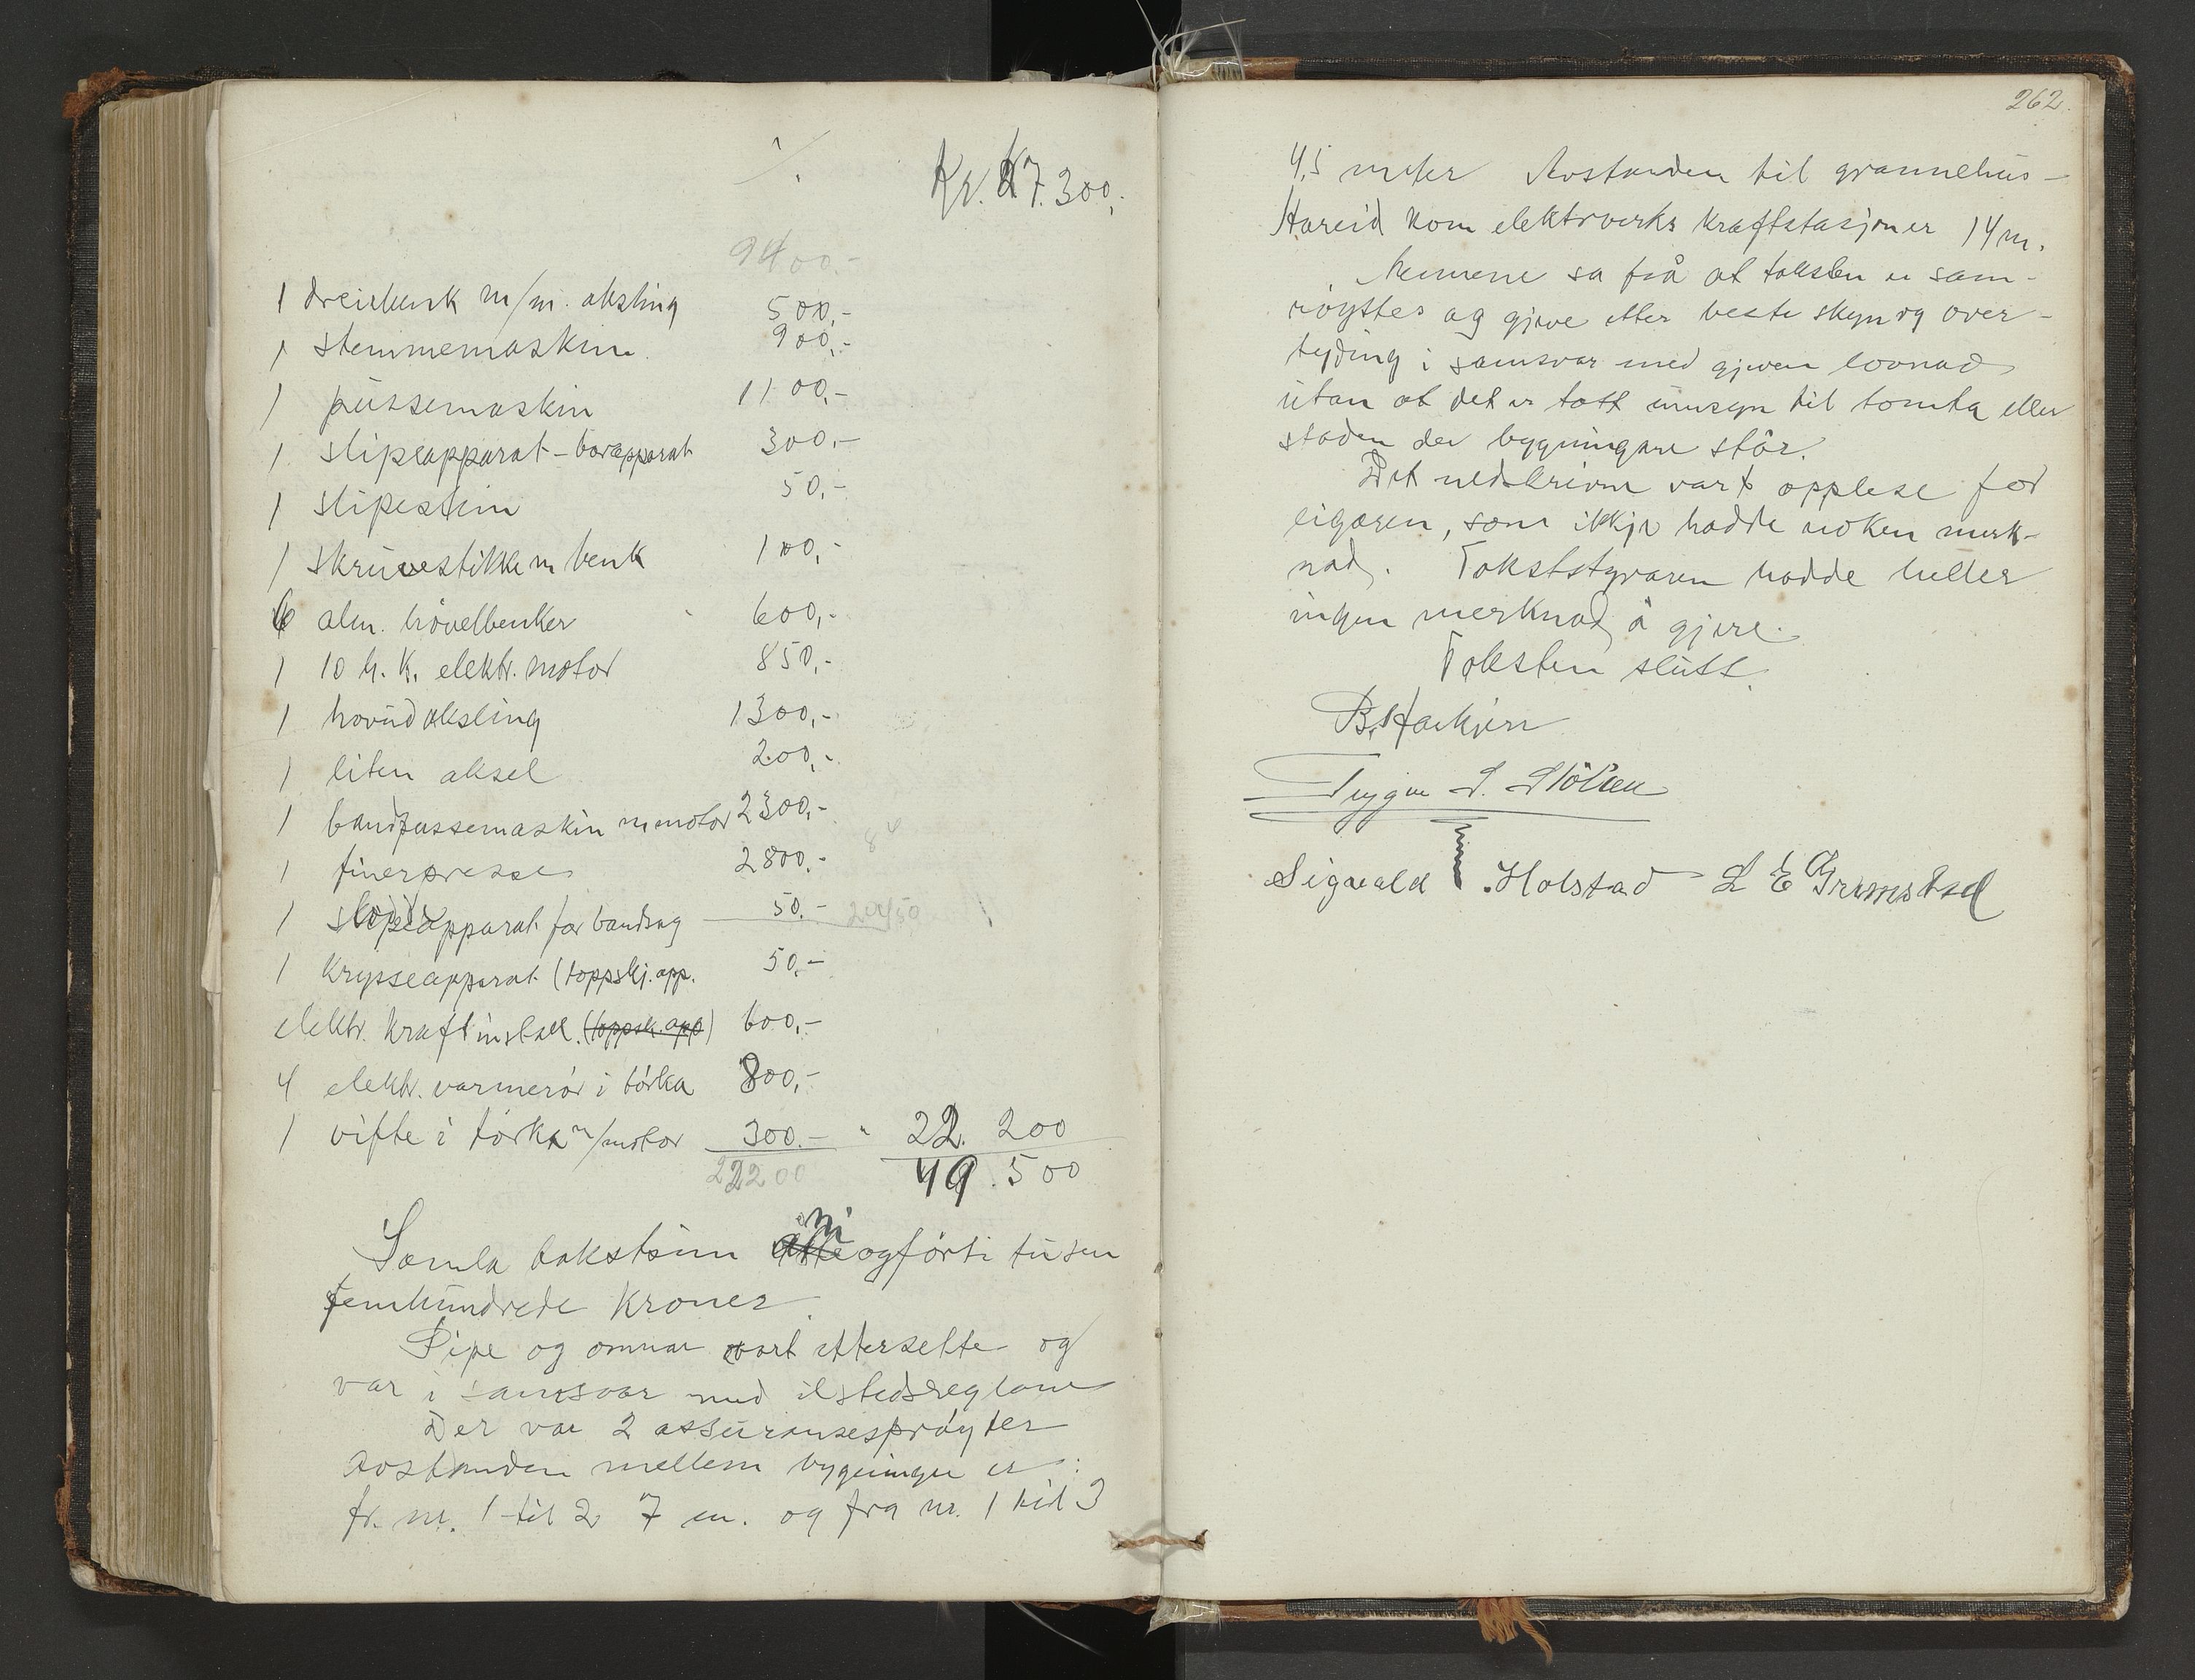 ./.
Kr. 27.300,-
9400.-
1 dreiebenk m/m. aksling 500,-
1 stemmemaskin. 900,-
1 pussemaskin 1100,-
1 slipeapparat - borapparat 300,-
1 slipestein 50,-
1 skruvestikke m benk 100,-
6 alm. hövelbenker 600,-
1 10 h.k. elektr. motor 850,-
1 hovudaksling 1300,-
1 liten aksel 200,-
1 bandpussemaskin m motor 2300,-
1 finerpresse 2800,-
1 slipeapparat for bandsag 50,- 20450
1 krysseapparat (toppskj. app. 50,-
elektr. kraftinstall. (toppsk. app) 600,-
4 elektr. varmerör i törka 800,-
1 vifte i törka m/motor 300.- " 22.200
22200 49.500
Samla takstsum åtte ni ogförti tusen
femhundrede kroner.
Pipe og omnar vart ettersette og
var i samsvar med ilstedsreglane
Der var 2 assuransesprøyter
Avstanden mellem bygningen er:
fr. nr. 1 til 2 7 m. og fra nr. 1 til 3
262.
4,5 meter Avstanden til grannehus-
Hareid kom elektrverks kraftstasjon er 14 m.
Mennene sa frå at taksten er sam-
røystes og gjeve etter beste skyn og over-
tyding i samsvar med gjeven lovnad
utan at det er tatt umsyn til tomta eller
staden der bygningane står.
Det nedskrivne vart opplese for
eigaren, som ikkje hadde noken merk-
nad. Takststyraren hadde heller
ingen merknad å gjere.
Taksten slutt.
B. Hackjen
Trygve S. Stölen
Sigvald Holstad L E Grimstad